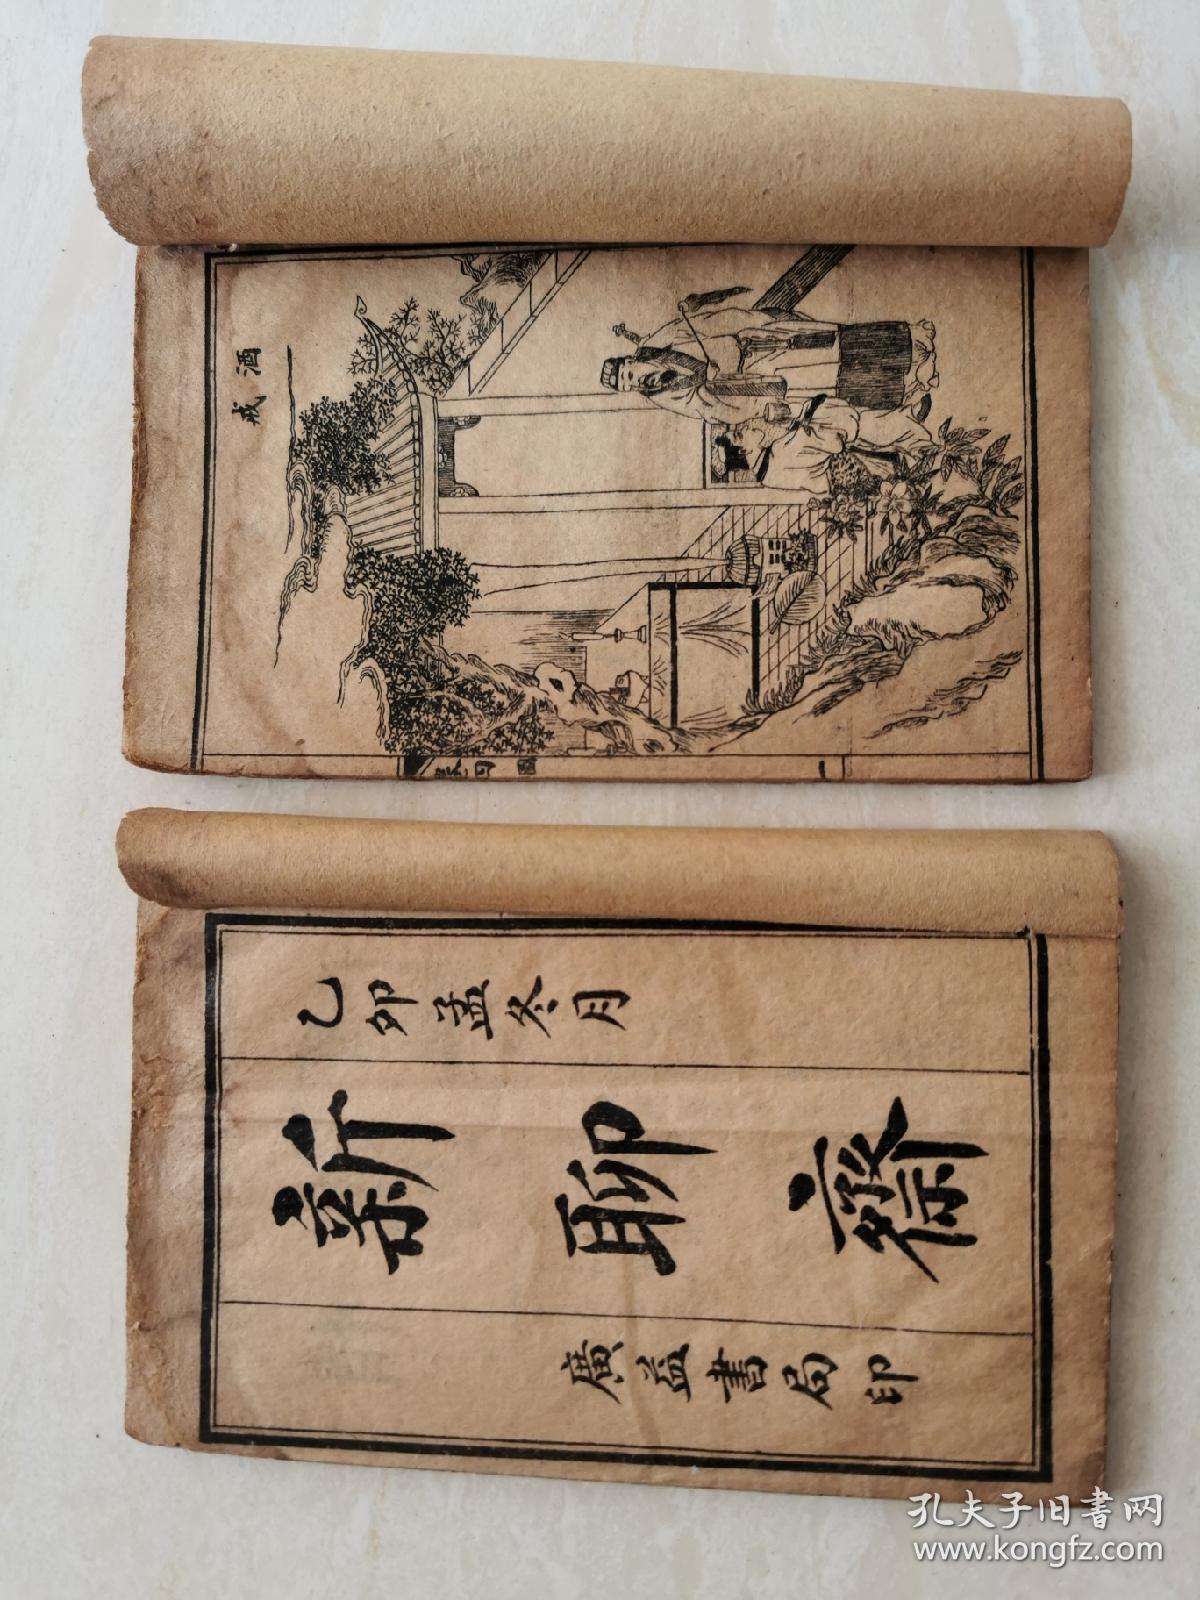 酒戒
一
乙卯孟冬月
新聊齋
廣益書局印
孔夫子旧书网
www.kongfz.com